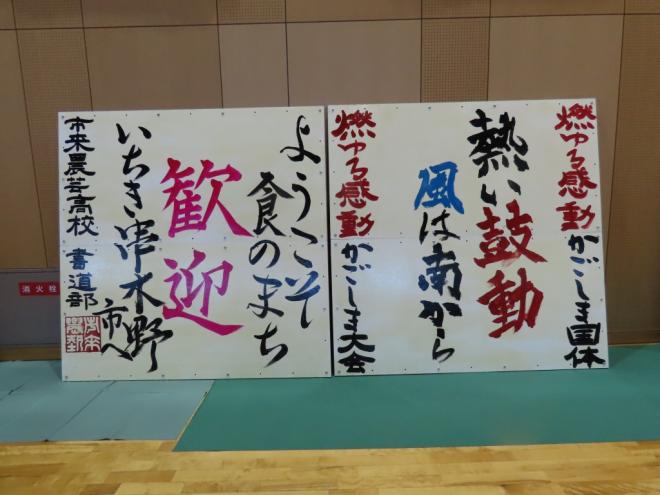 燃ゆる感動かごしま国体
熱い鼓動
風は南から
燃ゆる感動かごしま大会
ようこそ
食のまち
歓迎
いちき串木野市へ
市来農芸高校 書道部
消火栓